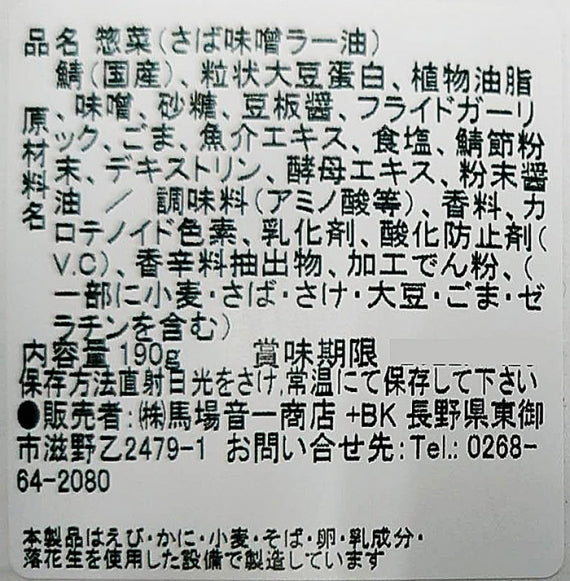 品名 惣菜(さば味噌ラー油)
原材料名
鯖(国産)、粒状大豆蛋白、植物油脂
、味噌、砂糖、豆板醤、フライドガーリ
ック、ごま、魚介エキス、食塩、鯖節粉
末、デキストリン、酵母エキス、粉末醤
油 / 調味料(アミノ酸等)、香料、カ
ロテノイド色素、乳化剤、酸化防止剤(
V.C)、香辛料抽出物、加工でん粉、(
一部に小麦・さば・さけ・大豆・ごま・ゼ
ラチンを含む)
内容量 190g 賞味期限
保存方法直射日光をさけ,常温にて保存して下さい
●販売者:㈱馬場音一商店 +BK 長野県東御
市滋野乙2479-1 お問い合せ先:Tel.: 0268-
64-2080
本製品はえび・かに・小麦・そば・卵・乳成分・
落花生を使用した設備で製造しています